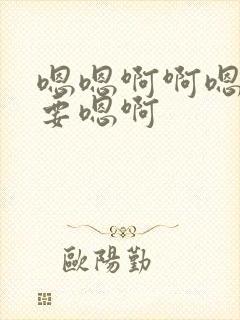 嗯嗯啊啊嗯
要嗯啊
歐陽勤